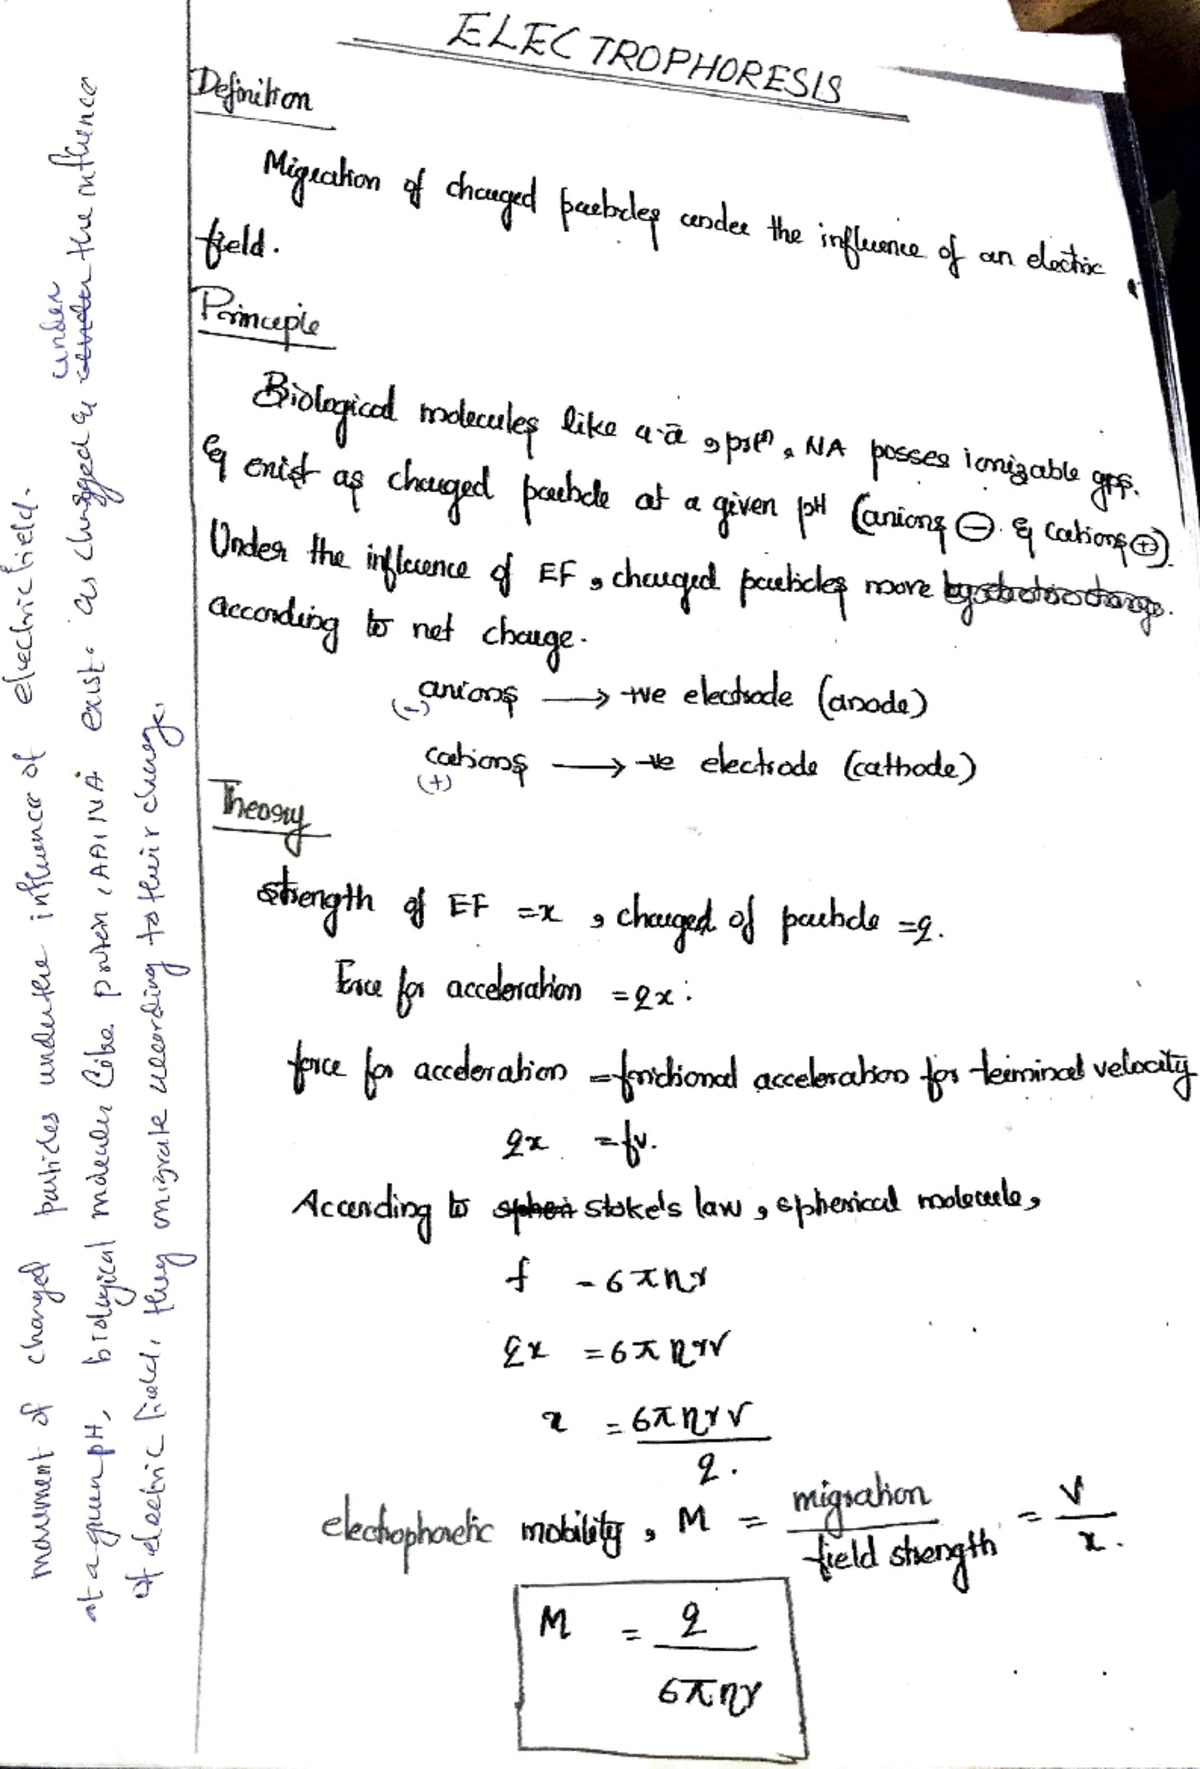 ELECTROPHORESIS
Definition
Migration of charged particles under the influence of an electric
field.
Principle
Biological molecules like a-a, ptn, NA posses ionizable gps.
& exist as charged particle at a given pH (anions ⊖ & cations ⊕)
Under the influence of EF, charged particles move
according to net charge.
anions → +ve electrode (anode)
(-)
cations → -ve electrode (cathode)
(+)
Theory
strength of EF = x, charged of particle = q.
Force for acceleration = qx.
force for acceleration = frictional acceleration for terminal velocity
qx = fv.
According to Stoke's law, spherical molecule,
f = 6πηr
qx = 6πηrv
x = 6πηrv
q.
electrophoretic mobility, M = migration / field strength = v / x.
M = q
6πηr
movement of charged particles under the influence of electric field.
at a given pH, biological molecules like protein, AA, NA exist as charged & under the influence
of electric field, they migrate according to their charge.